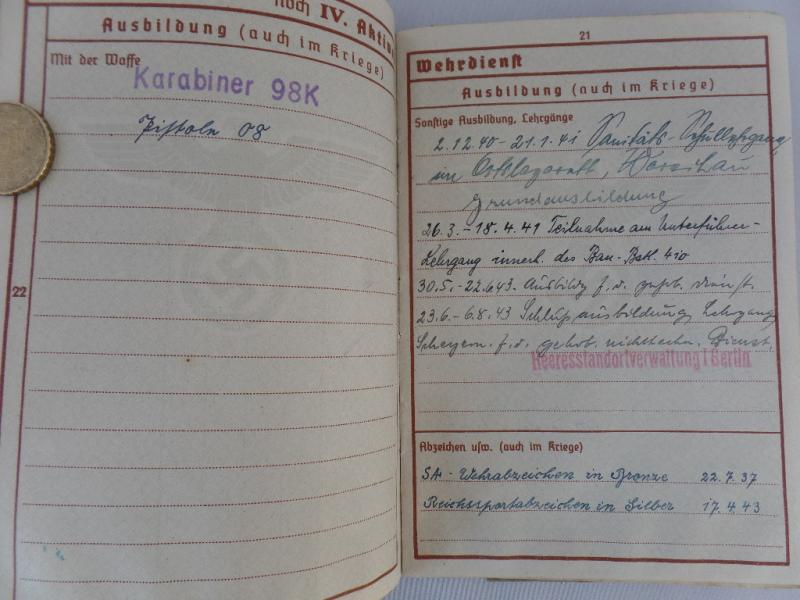 noch IV. Aktiv
Ausbildung (auch im Kriege)
Mit der Waffe
Karabiner 98K
Pistole 08
22
21
Wehrdienst
Ausbildung (auch im Kriege)
Sonstige Ausbildung, Lehrgänge
2.12.40 - 21.1.41 Sanitäts-Schullehrgang
im Ortslazarett, Warschau
Grundausbildung
26.3. - 18.4.41 Teilnahme am Unterführer-
Lehrgang innerh. des Bau-Batl. 410
30.5. - 22.6.43. Ausbildg f. d. gehob. Dienst.
23.6. - 6.8.43 Schlußausbildung, Lehrgang
f. d. gehob. nichttechn. Dienst.
Heeresstandortverwaltung I Berlin
Abzeichen usw. (auch im Kriege)
SA - Wehrabzeichen in Bronze 22.7.37
Reichssportabzeichen in Silber 17.4.43